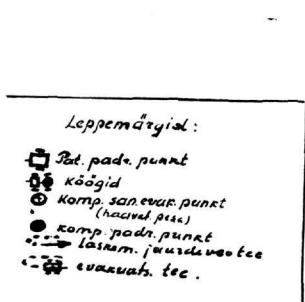 Leppemärgid:
Pat. padr. punkt
Köögid
Komp. san. evak. punkt
Komp. padr. punkt
laskem. juurdeveo tee
evakuats. tee.